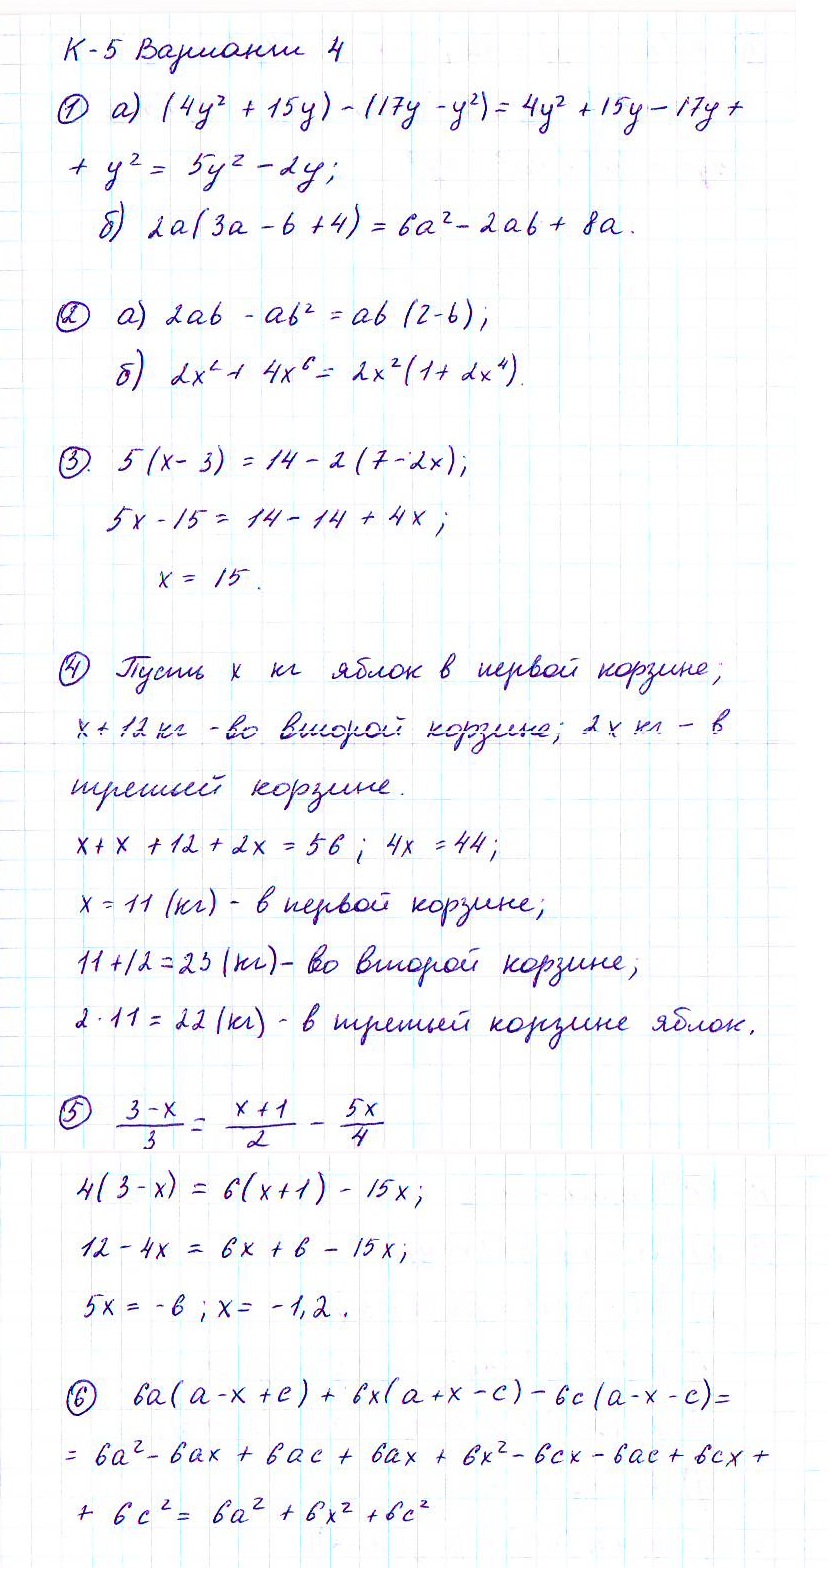 К-5 Вариант 4
① а) (4y² + 15y) - (17y - y²) = 4y² + 15y - 17y +
+ y² = 5y² - 2y;
б) 2a(3a - b + 4) = 6a² - 2ab + 8a.
② а) 2ab - ab² = ab (2-b);
б) 2x² + 4x⁶ = 2x²(1 + 2x⁴).
③. 5(x - 3) = 14 - 2(7 - 2x);
5x - 15 = 14 - 14 + 4x;
x = 15.
④ Пусть x кг яблок в первой корзине;
x + 12 кг - во второй корзине; 2x кг - в
третьей корзине.
x + x + 12 + 2x = 56; 4x = 44;
x = 11 (кг) - в первой корзине;
11 + 12 = 23 (кг) - во второй корзине;
2 · 11 = 22 (кг) - в третьей корзине яблок.
⑤ (3-x)/3 = (x+1)/2 - 5x/4
4(3-x) = 6(x+1) - 15x;
12 - 4x = 6x + 6 - 15x;
5x = -6; x = -1,2.
⑥ 6a(a - x + c) + 6x(a + x - c) - 6c(a - x - c) =
= 6a² - 6ax + 6ac + 6ax + 6x² - 6cx - 6ac + 6cx +
+ 6c² = 6a² + 6x² + 6c²